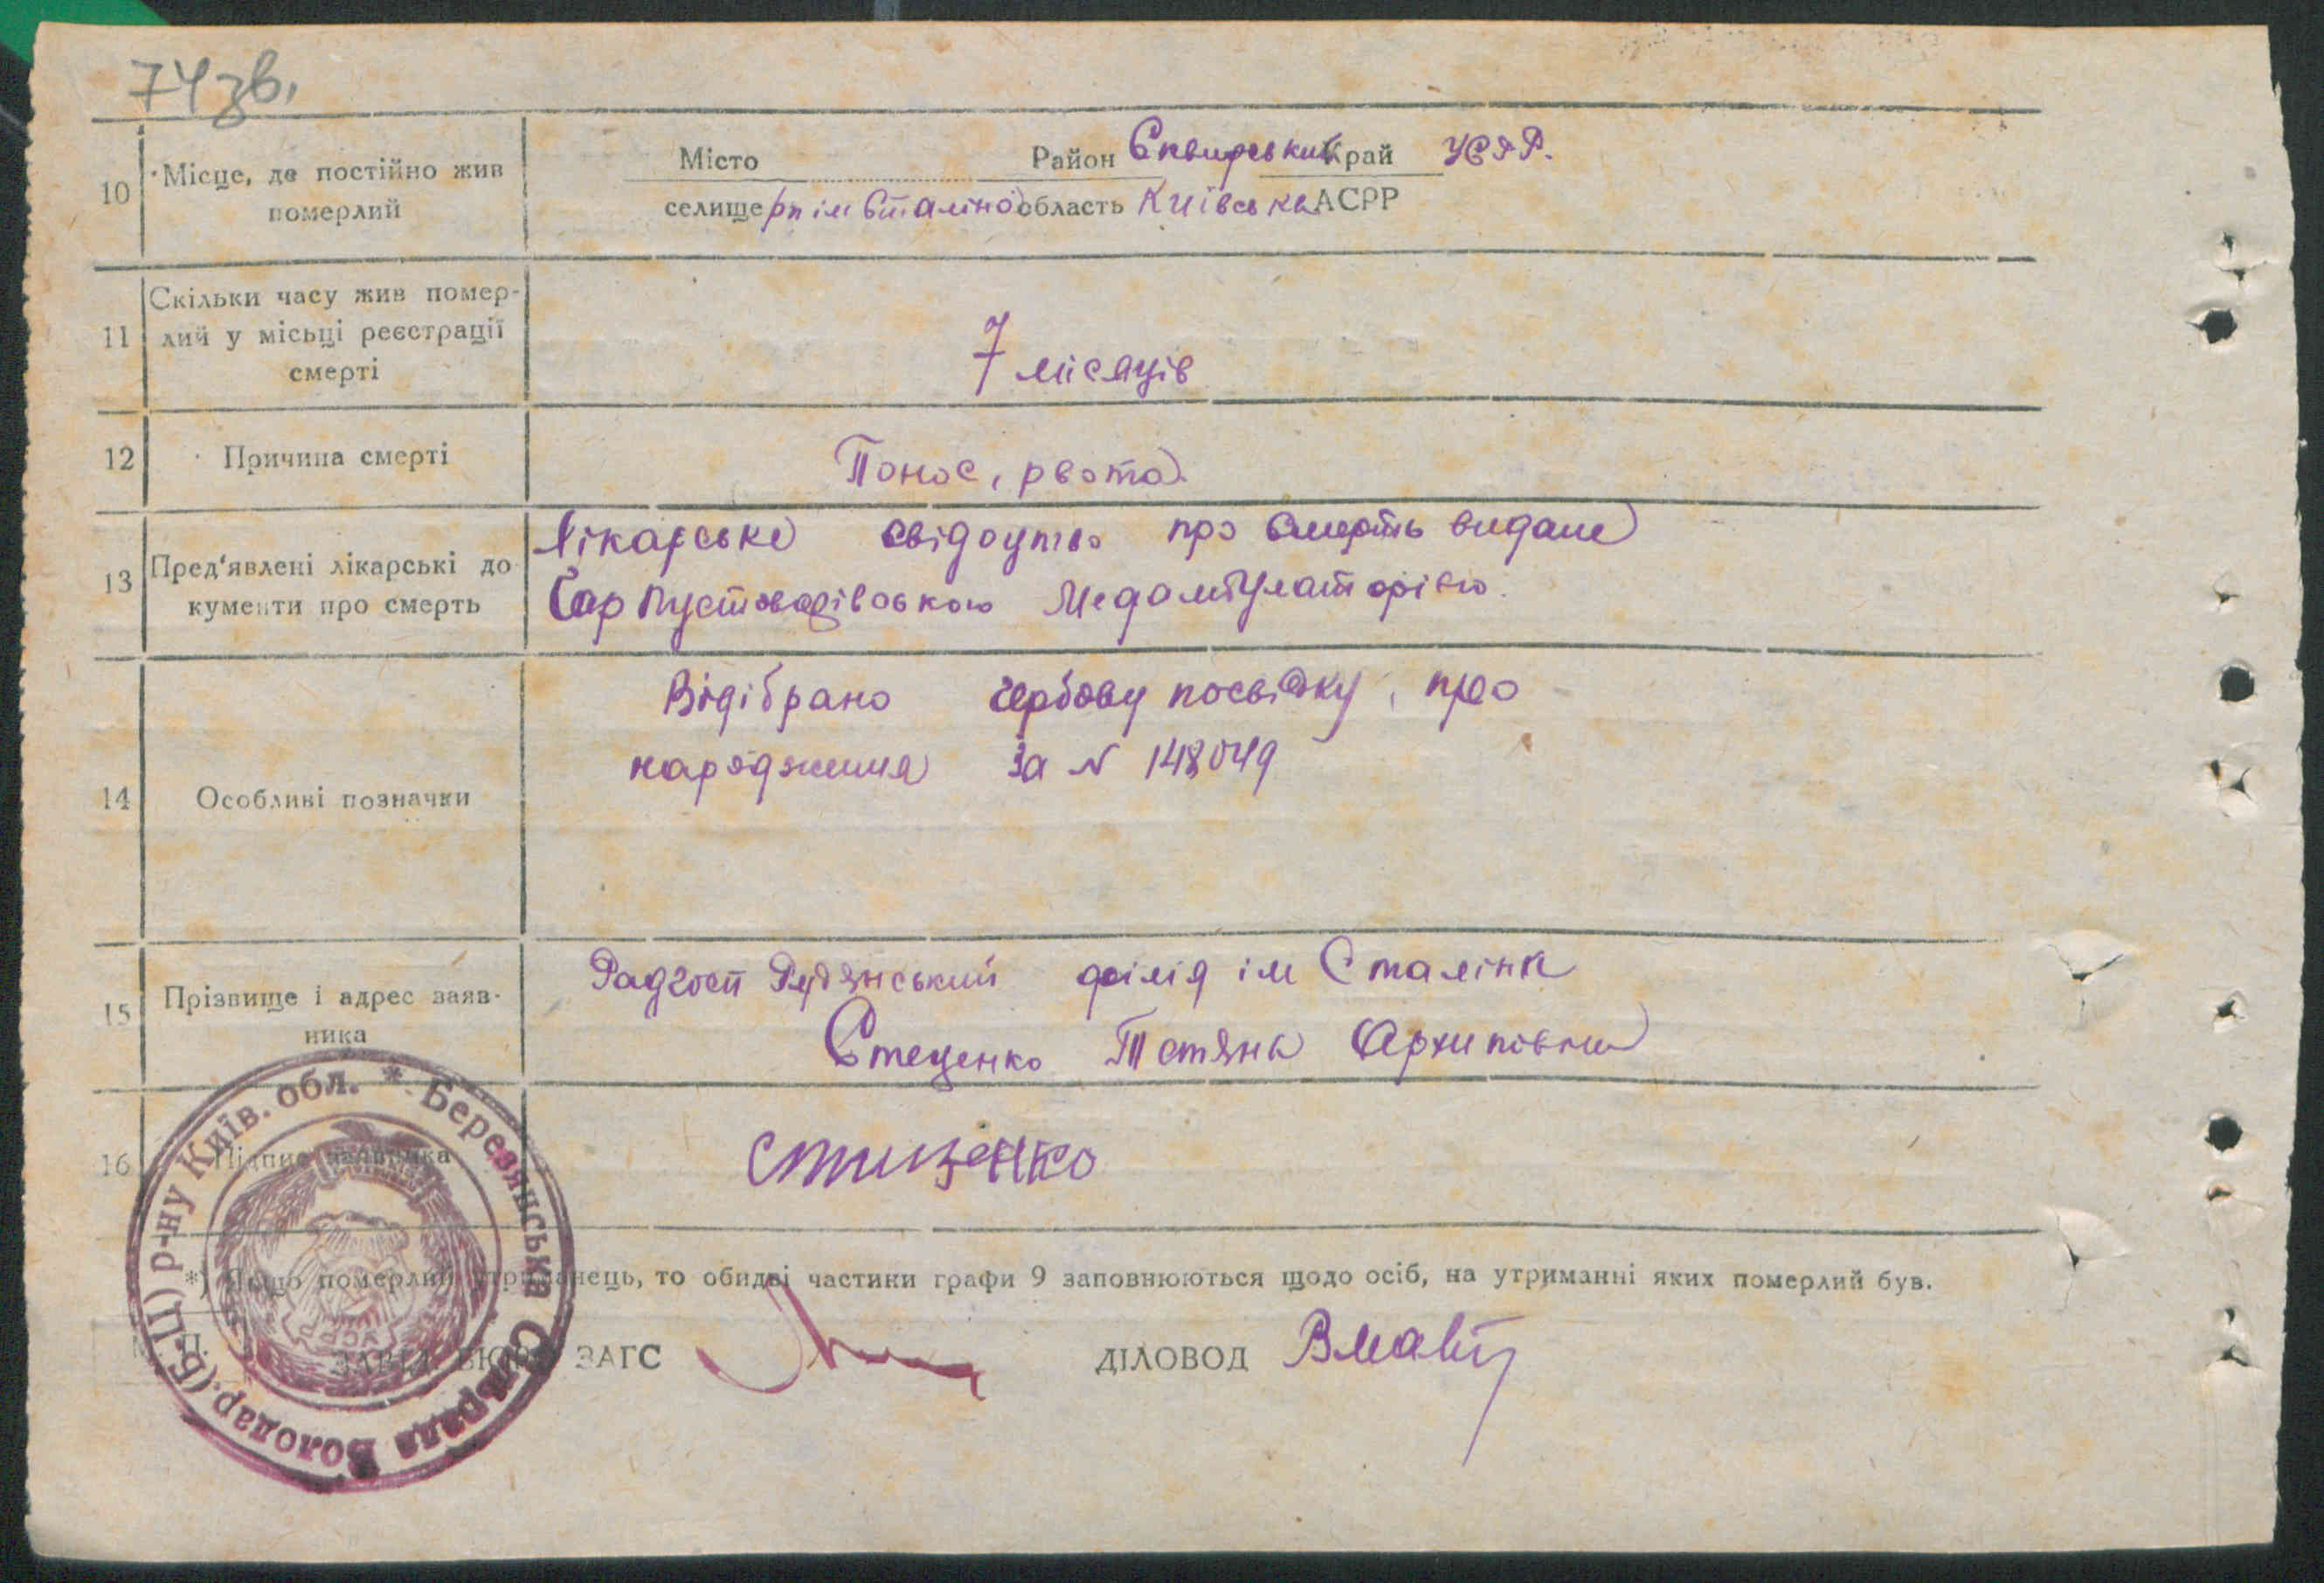 74 зв.
10 Місце, де постійно жив померлий
Місто Район Сквирський Край УСРР.
селище рп ім Сталіна область Київська АСРР
11 Скільки часу жив помер-
лий у місьці реєстрації
смерті
7 місяців
12 Причина смерті
Понос, рвота
13 Пред'явлені лікарські до
кументи про смерть
Лікарське свідоцтво про смерть видане
Медамбулаторією.
14 Особливі позначки
Відібрано гербову посвідку, про
народження За № 148049
15 Прізвище і адрес заяв-
ника
Радгосп філія ім Сталіна
Стеценко Тетяна Архиповна
16 Підпис заявника
стиценко
*) Якщо померлий утриманець, то обидві частини графи 9 заповнюються щодо осіб, на утриманні яких померлий був.
М. П. ЗАВІД. БЮРО ЗАГС ДІЛОВОД
* Березянська Сільрада Володар. (Б-Ц) р-ну Київ. обл.
УСРР